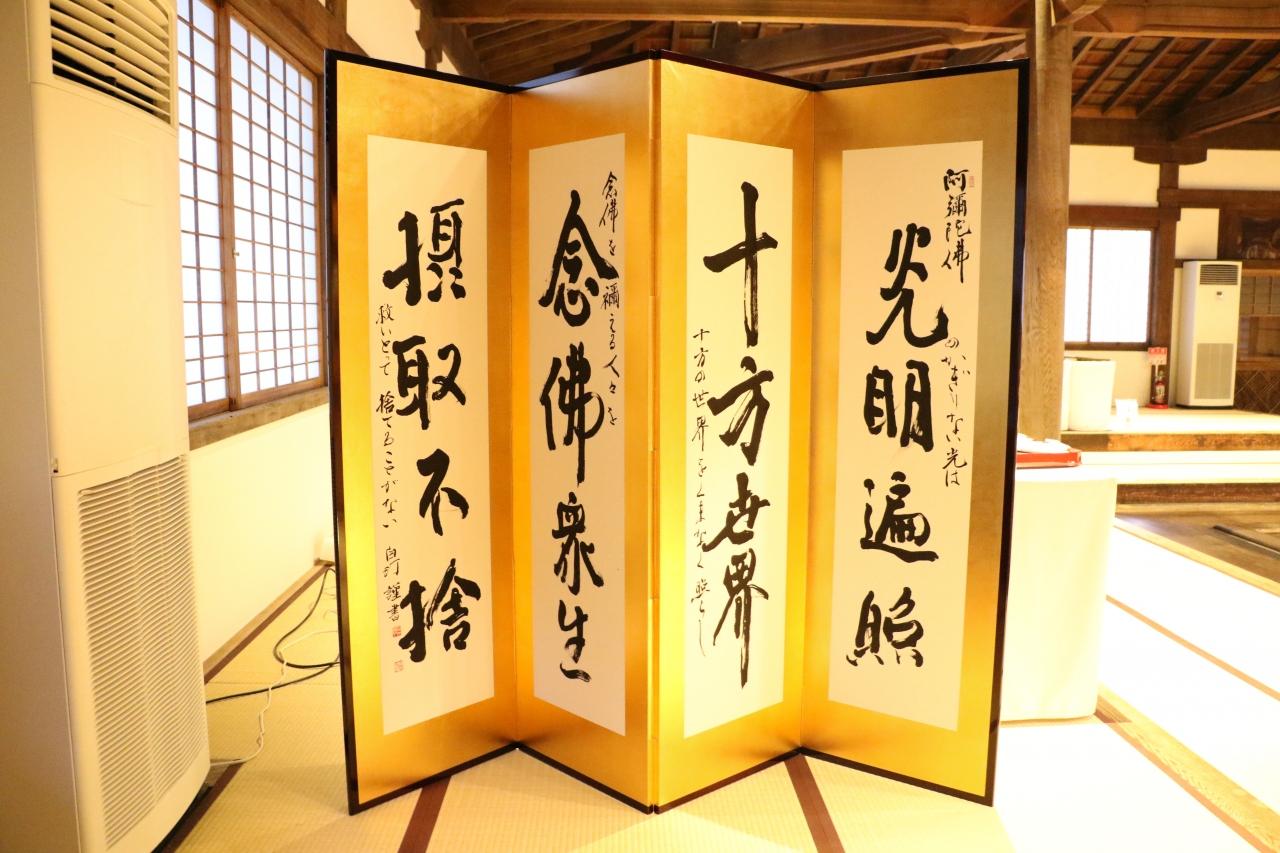 阿彌陀佛のかぎりない光は
光明遍照
十方世界
十方の世界をくまなく照らし
念佛を稱える人々を
念佛衆生
摂取不捨
救いとって 捨てることがない 白汀 謹書